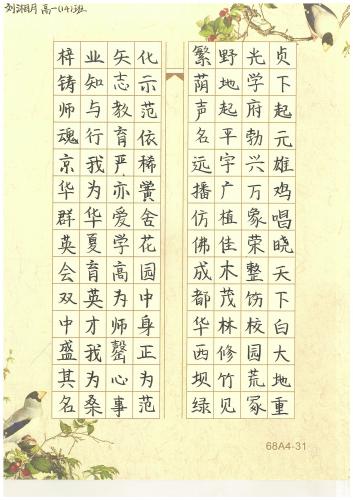 高一(14)班
贞下起元雄鸡唱晓天下白大地重
光学府勃兴万象荣整饬校园荒冢
野地起平宇广植佳木茂林修竹见
繁荫声名远播仿佛成都华西坝绿
化示范依稀黉舍花园中身正为范
矢志教育严亦爱学高为师罄心事
业知与行我为华夏育英才我为桑
梓铸师魂京华群英会双中盛其名
68A4-31